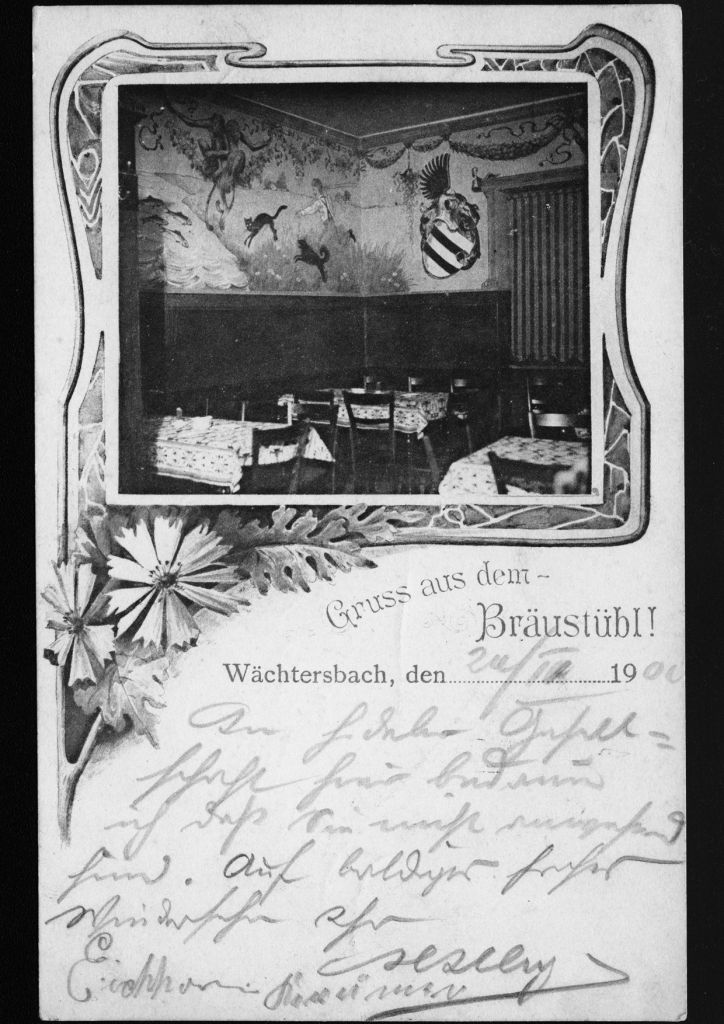 Gruss aus dem-
Bräustübl!
Wächtersbach, den 20/IV 1900
In fideler Gesell=
schaft hier bedaure
ich daß Sie nicht anwesend
sind. Auf baldiges frohes
Wiedersehn Ihr
Eichhorn